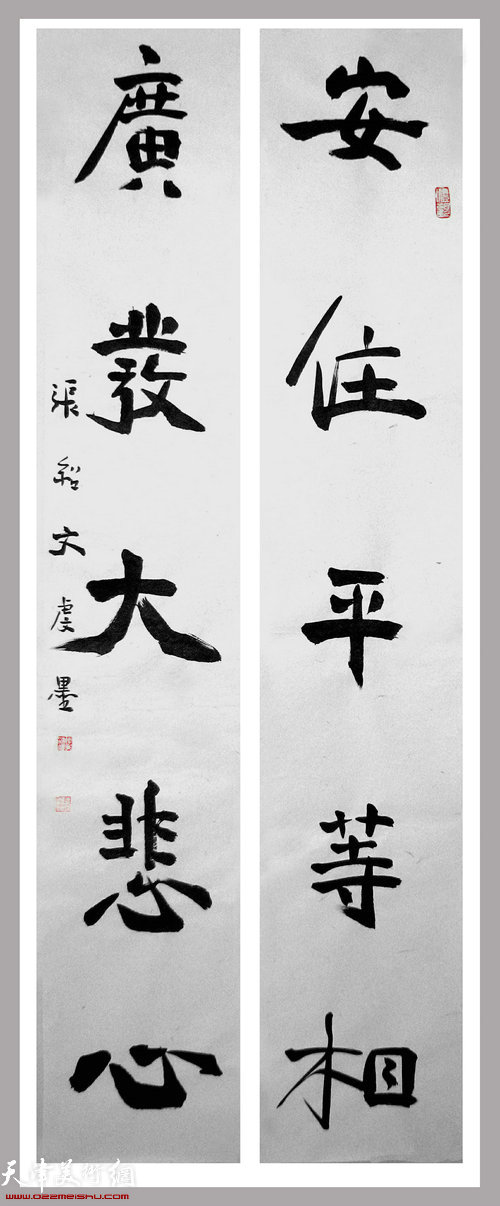 安住平等相
廣發大悲心
張紹文虔墨
天津美術網
www.022meishu.com